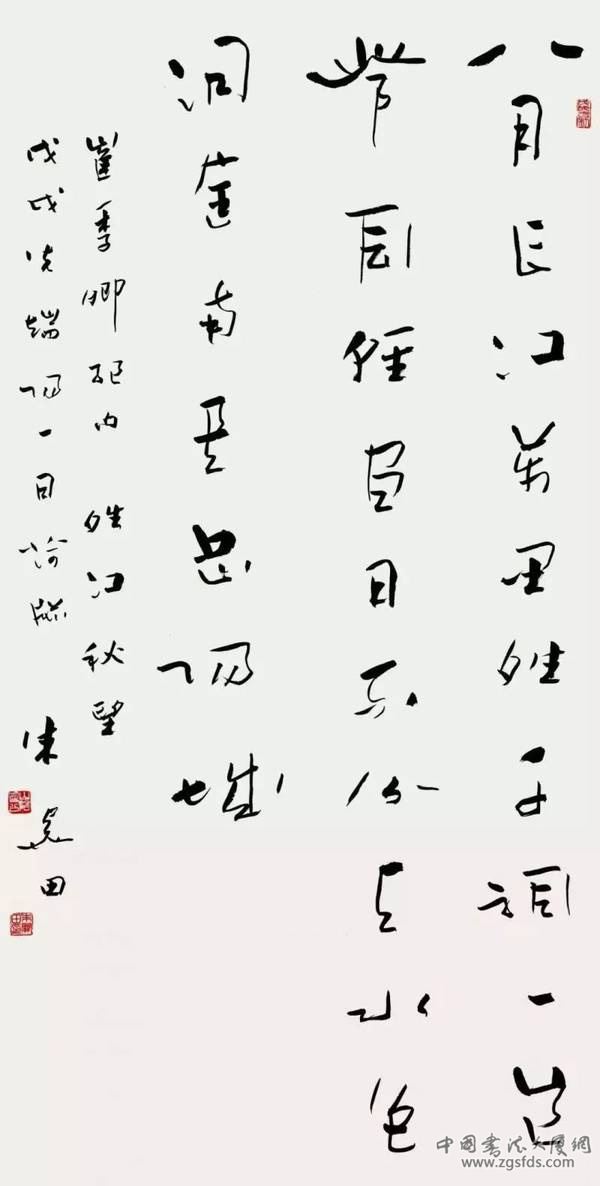 八月長江萬里晴千帆一道
帶風輕盡日不分天水色
洞庭南是岳陽城
崔季卿 晴江秋望
戊戌先端陽一日 朱 田
中国书法大厦網
www.zgsfds.com